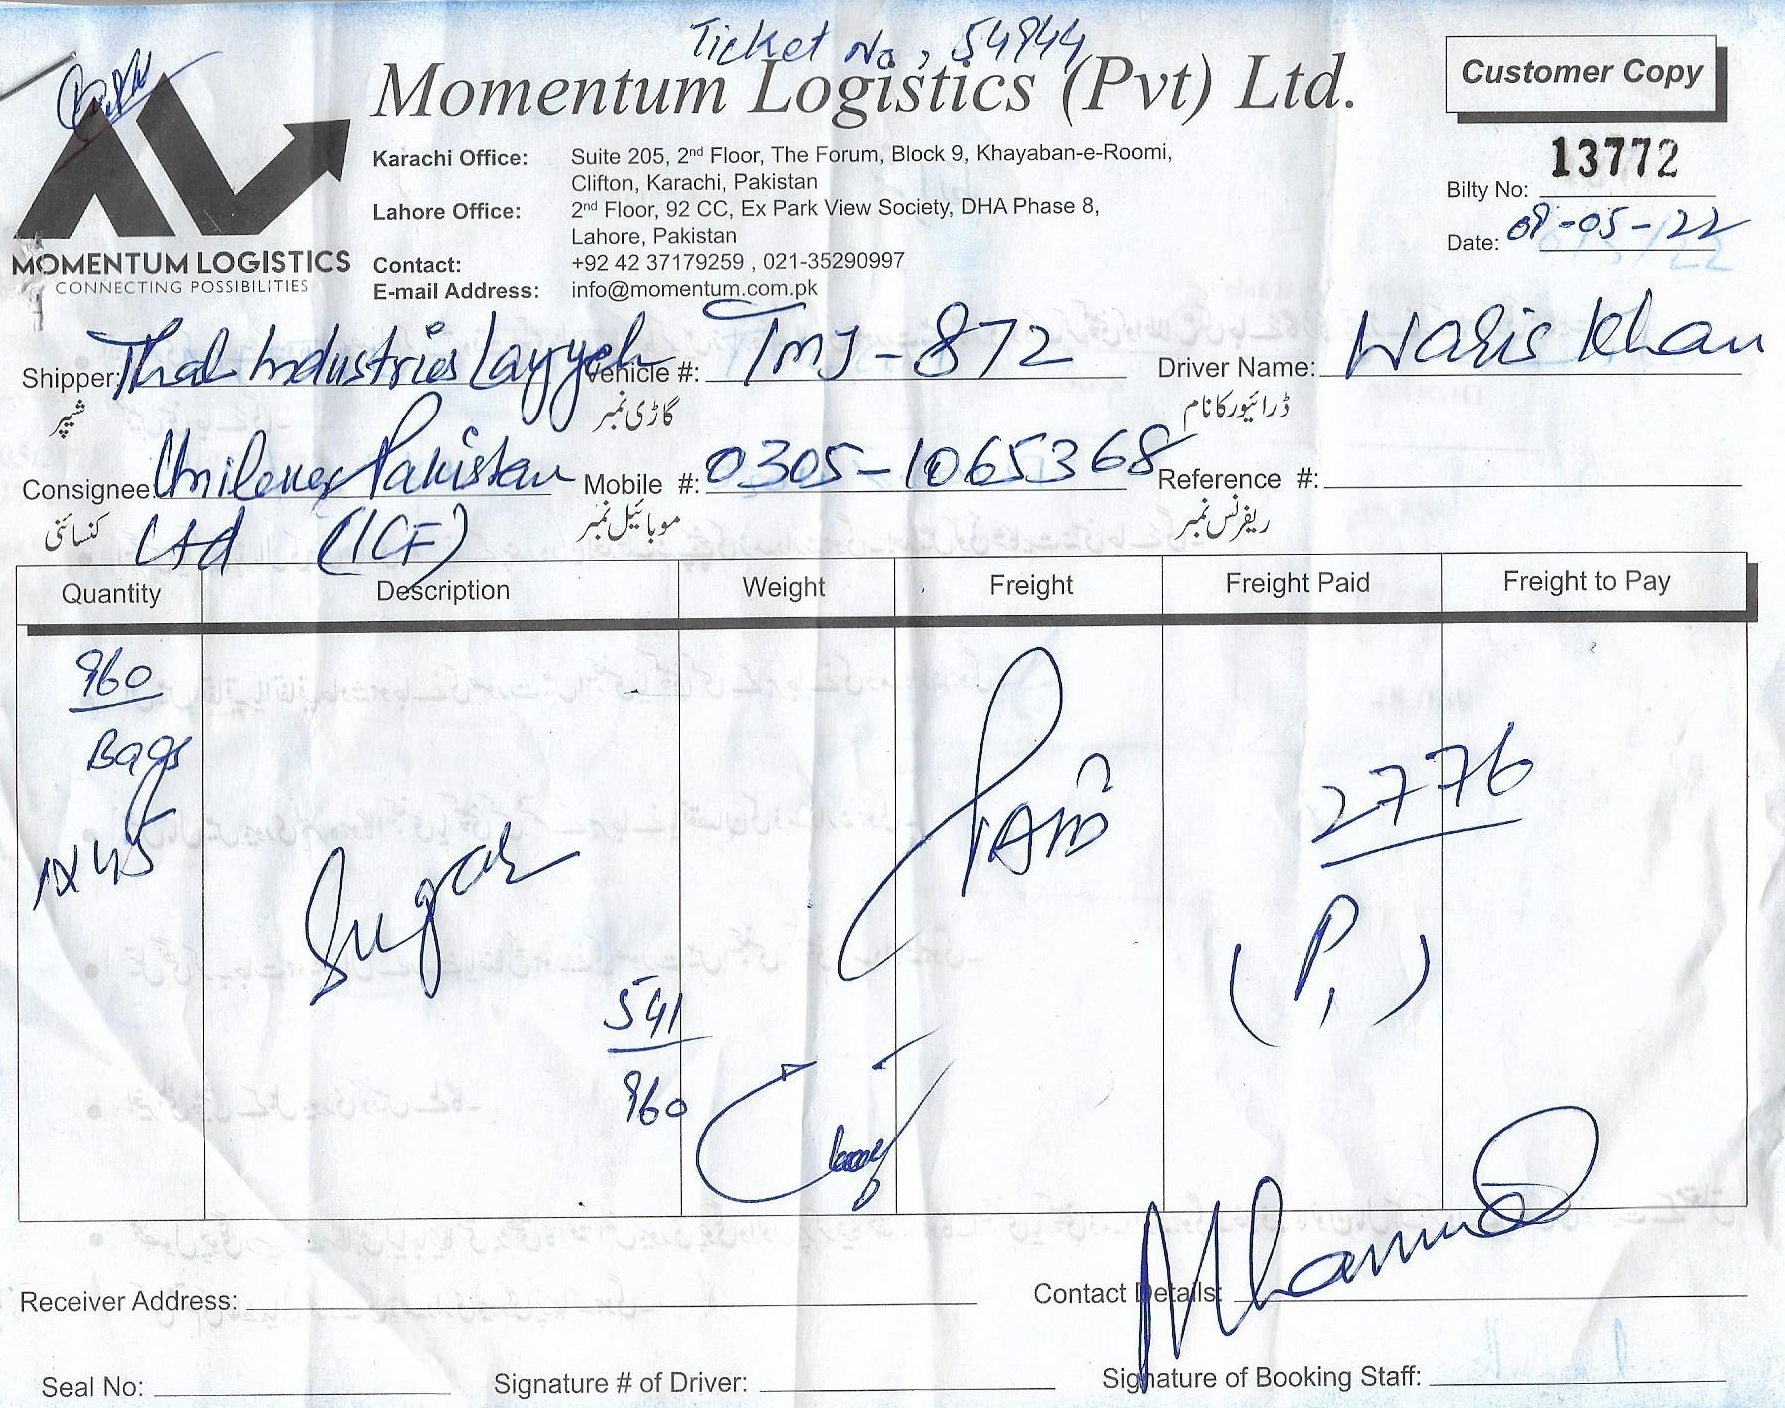 Ticket No, 54944
Momentum Logistics (Pvt) Ltd.
Customer Copy
MOMENTUM LOGISTICS
CONNECTING POSSIBILITIES
Karachi Office: Suite 205, 2nd Floor, The Forum, Block 9, Khayaban-e-Roomi,
Clifton, Karachi, Pakistan
Lahore Office: 2nd Floor, 92 CC, Ex Park View Society, DHA Phase 8,
Lahore, Pakistan
Contact: +92 42 37179259 , 021-35290997
E-mail Address: info@momentum.com.pk
Bilty No: 13772
Date: 09-05-22
Shipper: Thal Industries Layyah Vehicle #: TMJ-872 Driver Name: Waris Khan
شیپر گاڑی نمبر ڈرائیور کا نام
Consignee: Unilever Pakistan Mobile #: 0305-1065368 Reference #:
کنسائنی Ltd (ICF) موبائیل نمبر ریفرنس نمبر
Quantity Description Weight Freight Freight Paid Freight to Pay
960
Bags
Sugar
PAID
2776
(P,)
541
960
Receiver Address: Contact Details:
Seal No: Signature # of Driver: Signature of Booking Staff: